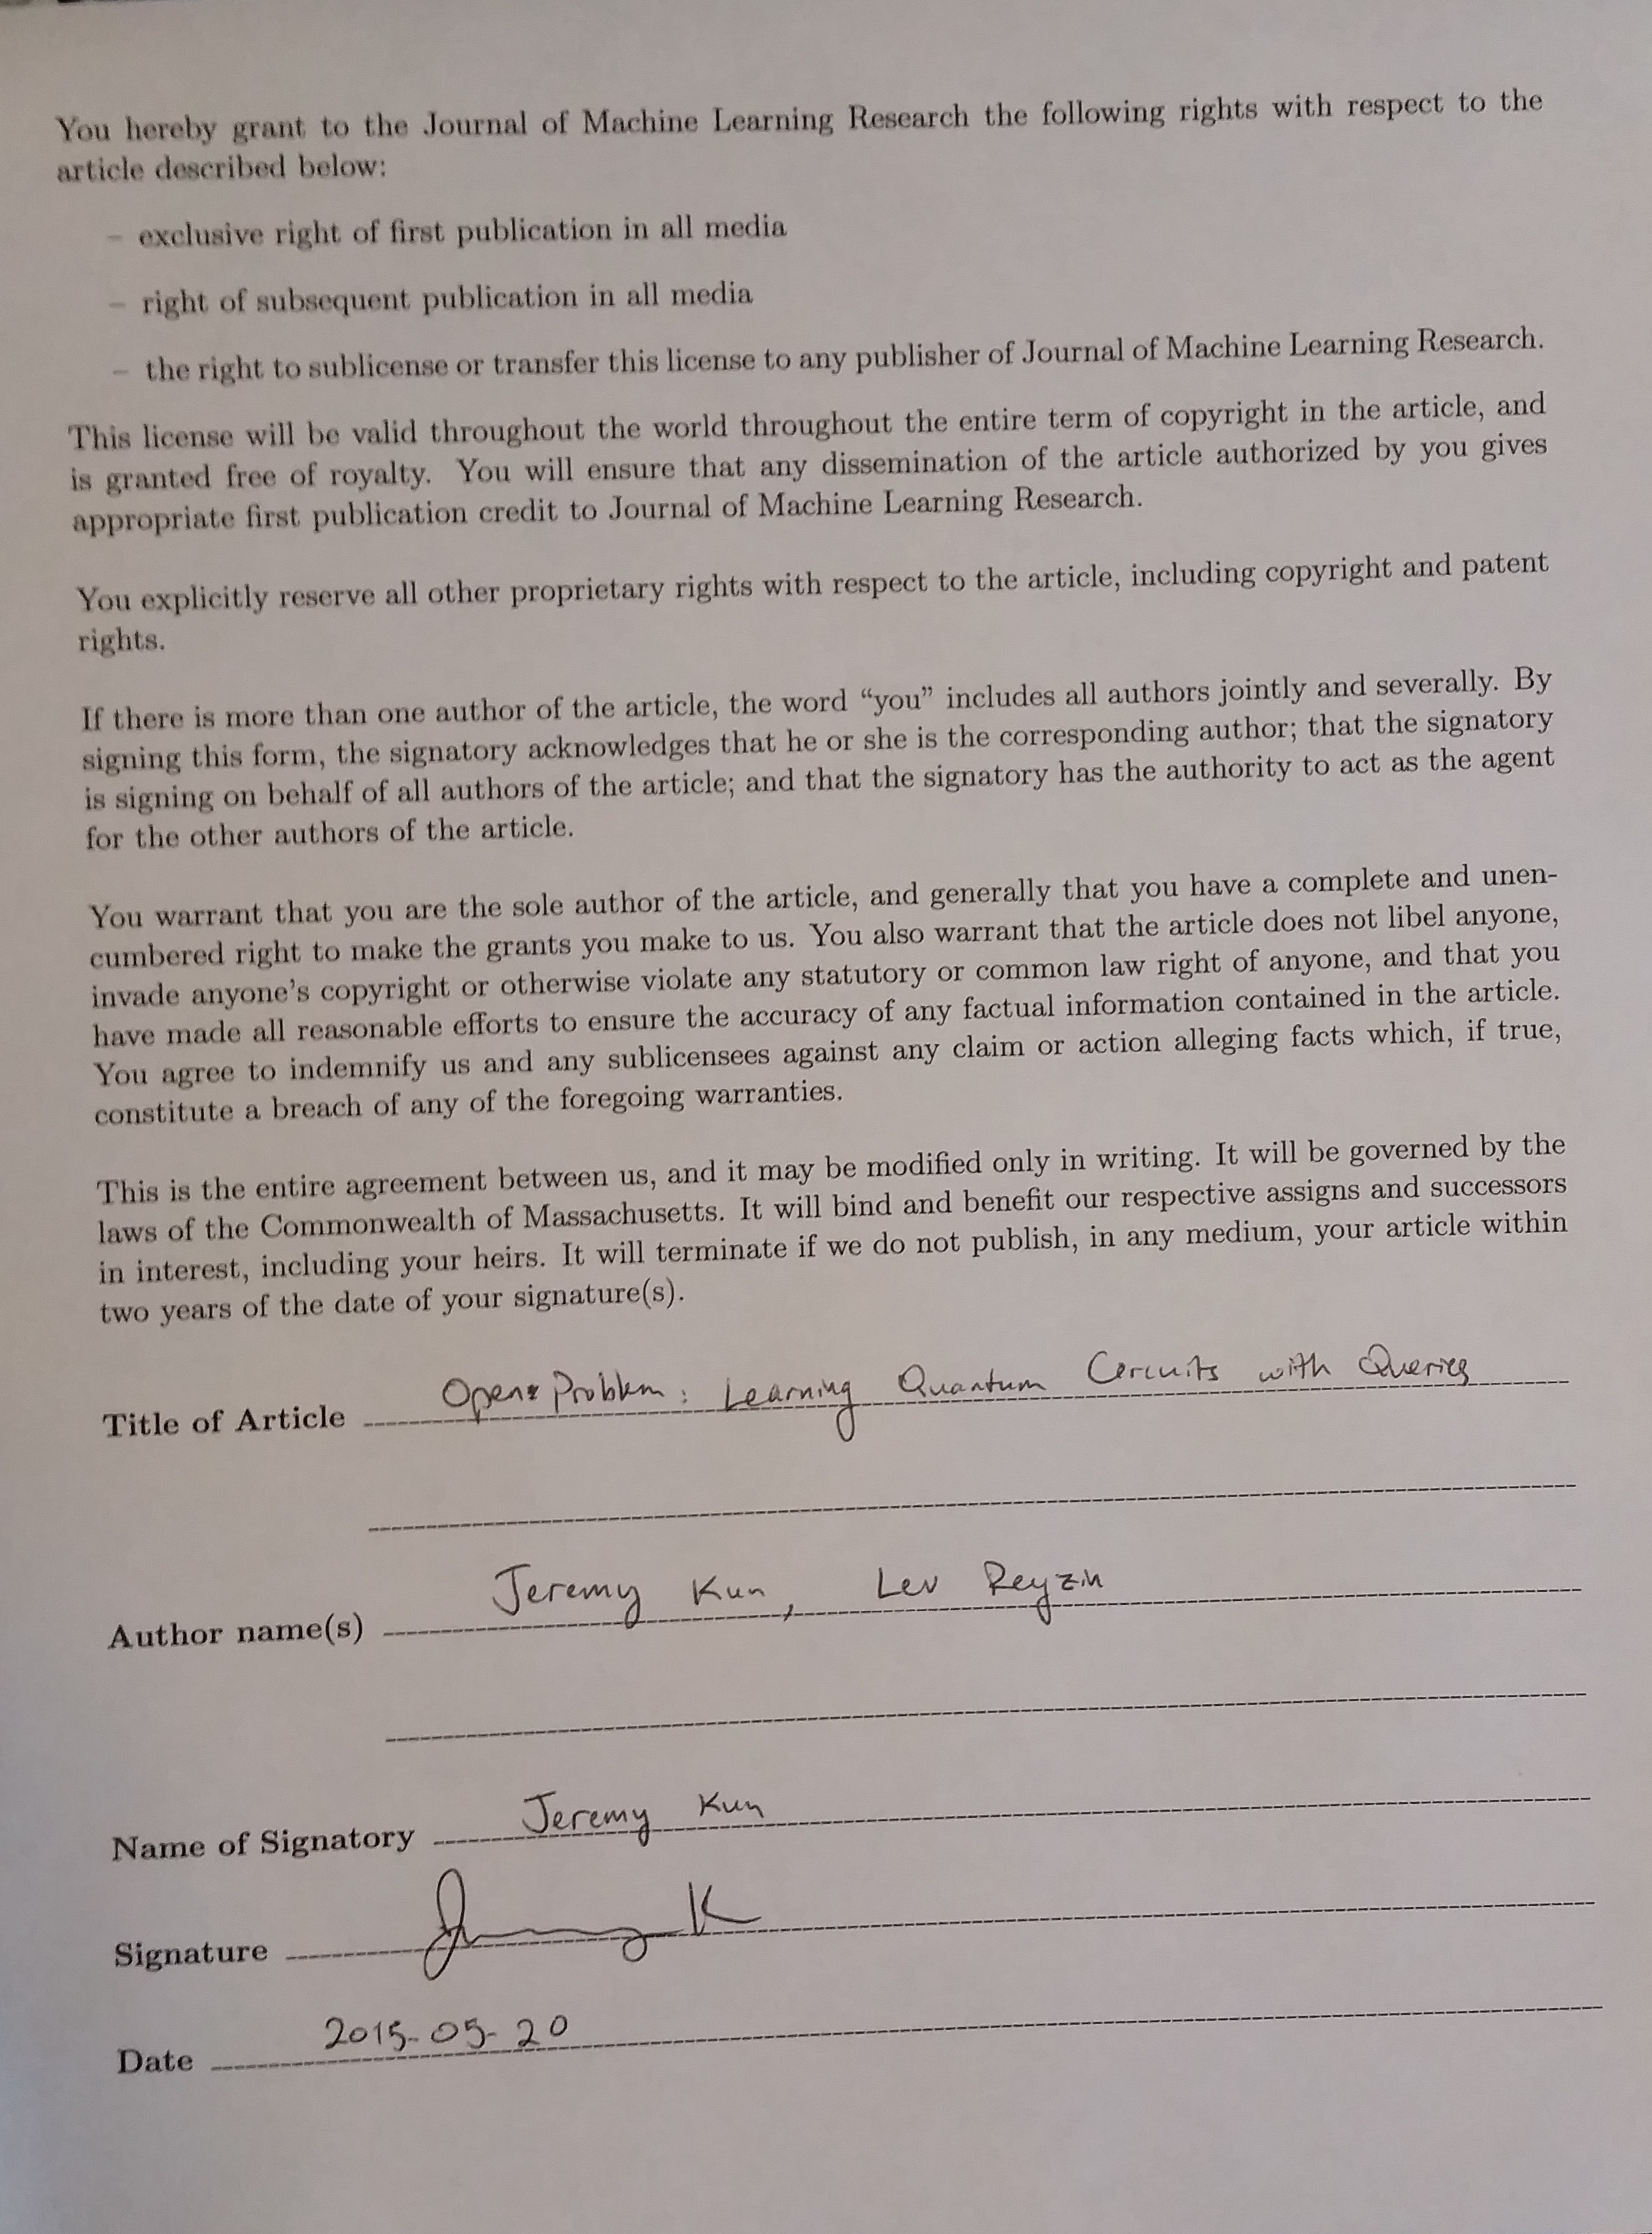 You hereby grant to the Journal of Machine Learning Research the following rights with respect to the
article described below:
– exclusive right of first publication in all media
– right of subsequent publication in all media
– the right to sublicense or transfer this license to any publisher of Journal of Machine Learning Research.
This license will be valid throughout the world throughout the entire term of copyright in the article, and
is granted free of royalty. You will ensure that any dissemination of the article authorized by you gives
appropriate first publication credit to Journal of Machine Learning Research.
You explicitly reserve all other proprietary rights with respect to the article, including copyright and patent
rights.
If there is more than one author of the article, the word “you” includes all authors jointly and severally. By
signing this form, the signatory acknowledges that he or she is the corresponding author; that the signatory
is signing on behalf of all authors of the article; and that the signatory has the authority to act as the agent
for the other authors of the article.
You warrant that you are the sole author of the article, and generally that you have a complete and unen-
cumbered right to make the grants you make to us. You also warrant that the article does not libel anyone,
invade anyone’s copyright or otherwise violate any statutory or common law right of anyone, and that you
have made all reasonable efforts to ensure the accuracy of any factual information contained in the article.
You agree to indemnify us and any sublicensees against any claim or action alleging facts which, if true,
constitute a breach of any of the foregoing warranties.
This is the entire agreement between us, and it may be modified only in writing. It will be governed by the
laws of the Commonwealth of Massachusetts. It will bind and benefit our respective assigns and successors
in interest, including your heirs. It will terminate if we do not publish, in any medium, your article within
two years of the date of your signature(s).
Title of Article Open Problem: Learning Quantum Circuits with Queries
Author name(s) Jeremy Kun, Lev Reyzin
Name of Signatory Jeremy Kun
Signature Jeremy K
Date 2015-05-20